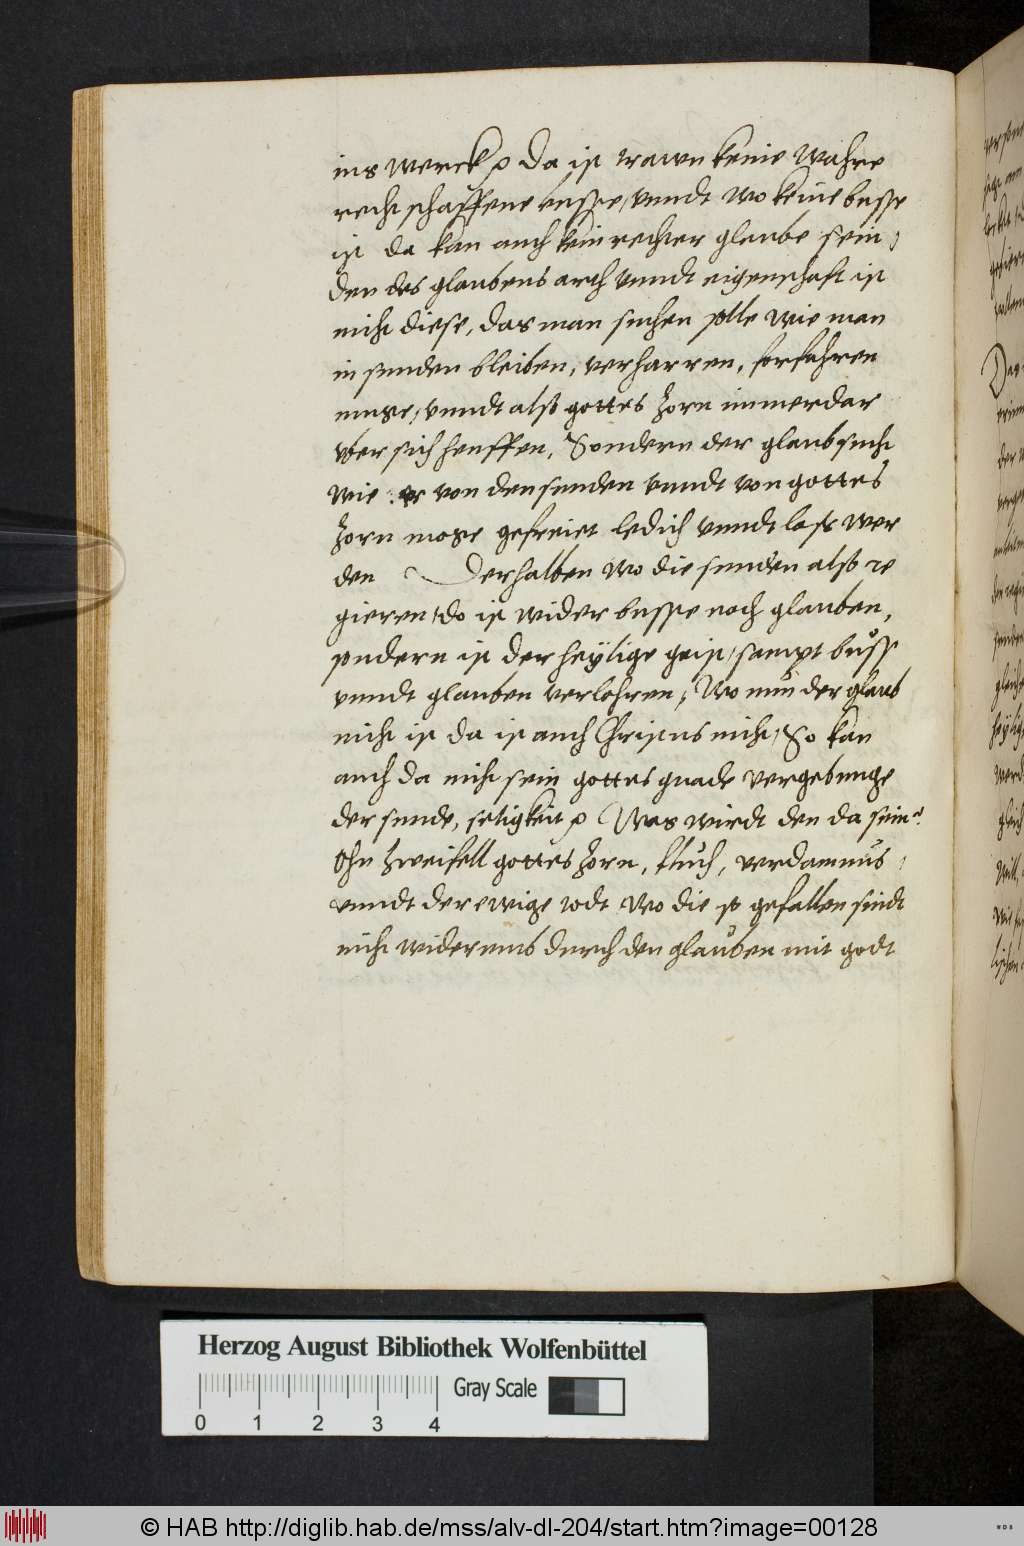 ins werck ꝛc da ist trawn keine wahre
rechtschaffene busse, vnndt wo keine busse
ist da kan auch kein rechter glaube sein,
den des glaubens arth vnndt eigenschaft ist
nicht diese, das man suchen solle wie man
in sunden bleiben, verharren, forfahren
muge, vnndt also gottes zorn immerdar
vber sich heuffen, Sondern der glaub sucht
wie er von den sunden vnndt von gottes
zorn moge gefreiet ledich vnndt loss wer
den Derhalben wo die sunden also re
gieren, do ist wider busse noch glauben,
sondern ist der heÿlige geist, sampt buss
vnndt glauben verlohren, Wo nun der glaub
nicht ist da ist auch Christus nicht, So kan
auch da nicht sein gottes gnade vergebunge
der sunde, seligkeit ꝛc Was wirdt den da sein?
Ohn zweifell gottes zorn, fluch, verdamnus,
vnndt der ewige todt wo die so gefallen sindt
nicht widerumb durch den glauben mit godt
Herzog August Bibliothek Wolfenbüttel
Gray Scale
0 1 2 3 4
© HAB http://diglib.hab.de/mss/alv-dl-204/start.htm?image=00128